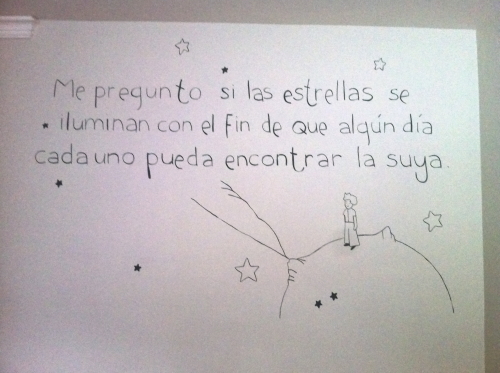 Me pregunto si las estrellas se
iluminan con el fin de que algún día
cada uno pueda encontrar la suya.